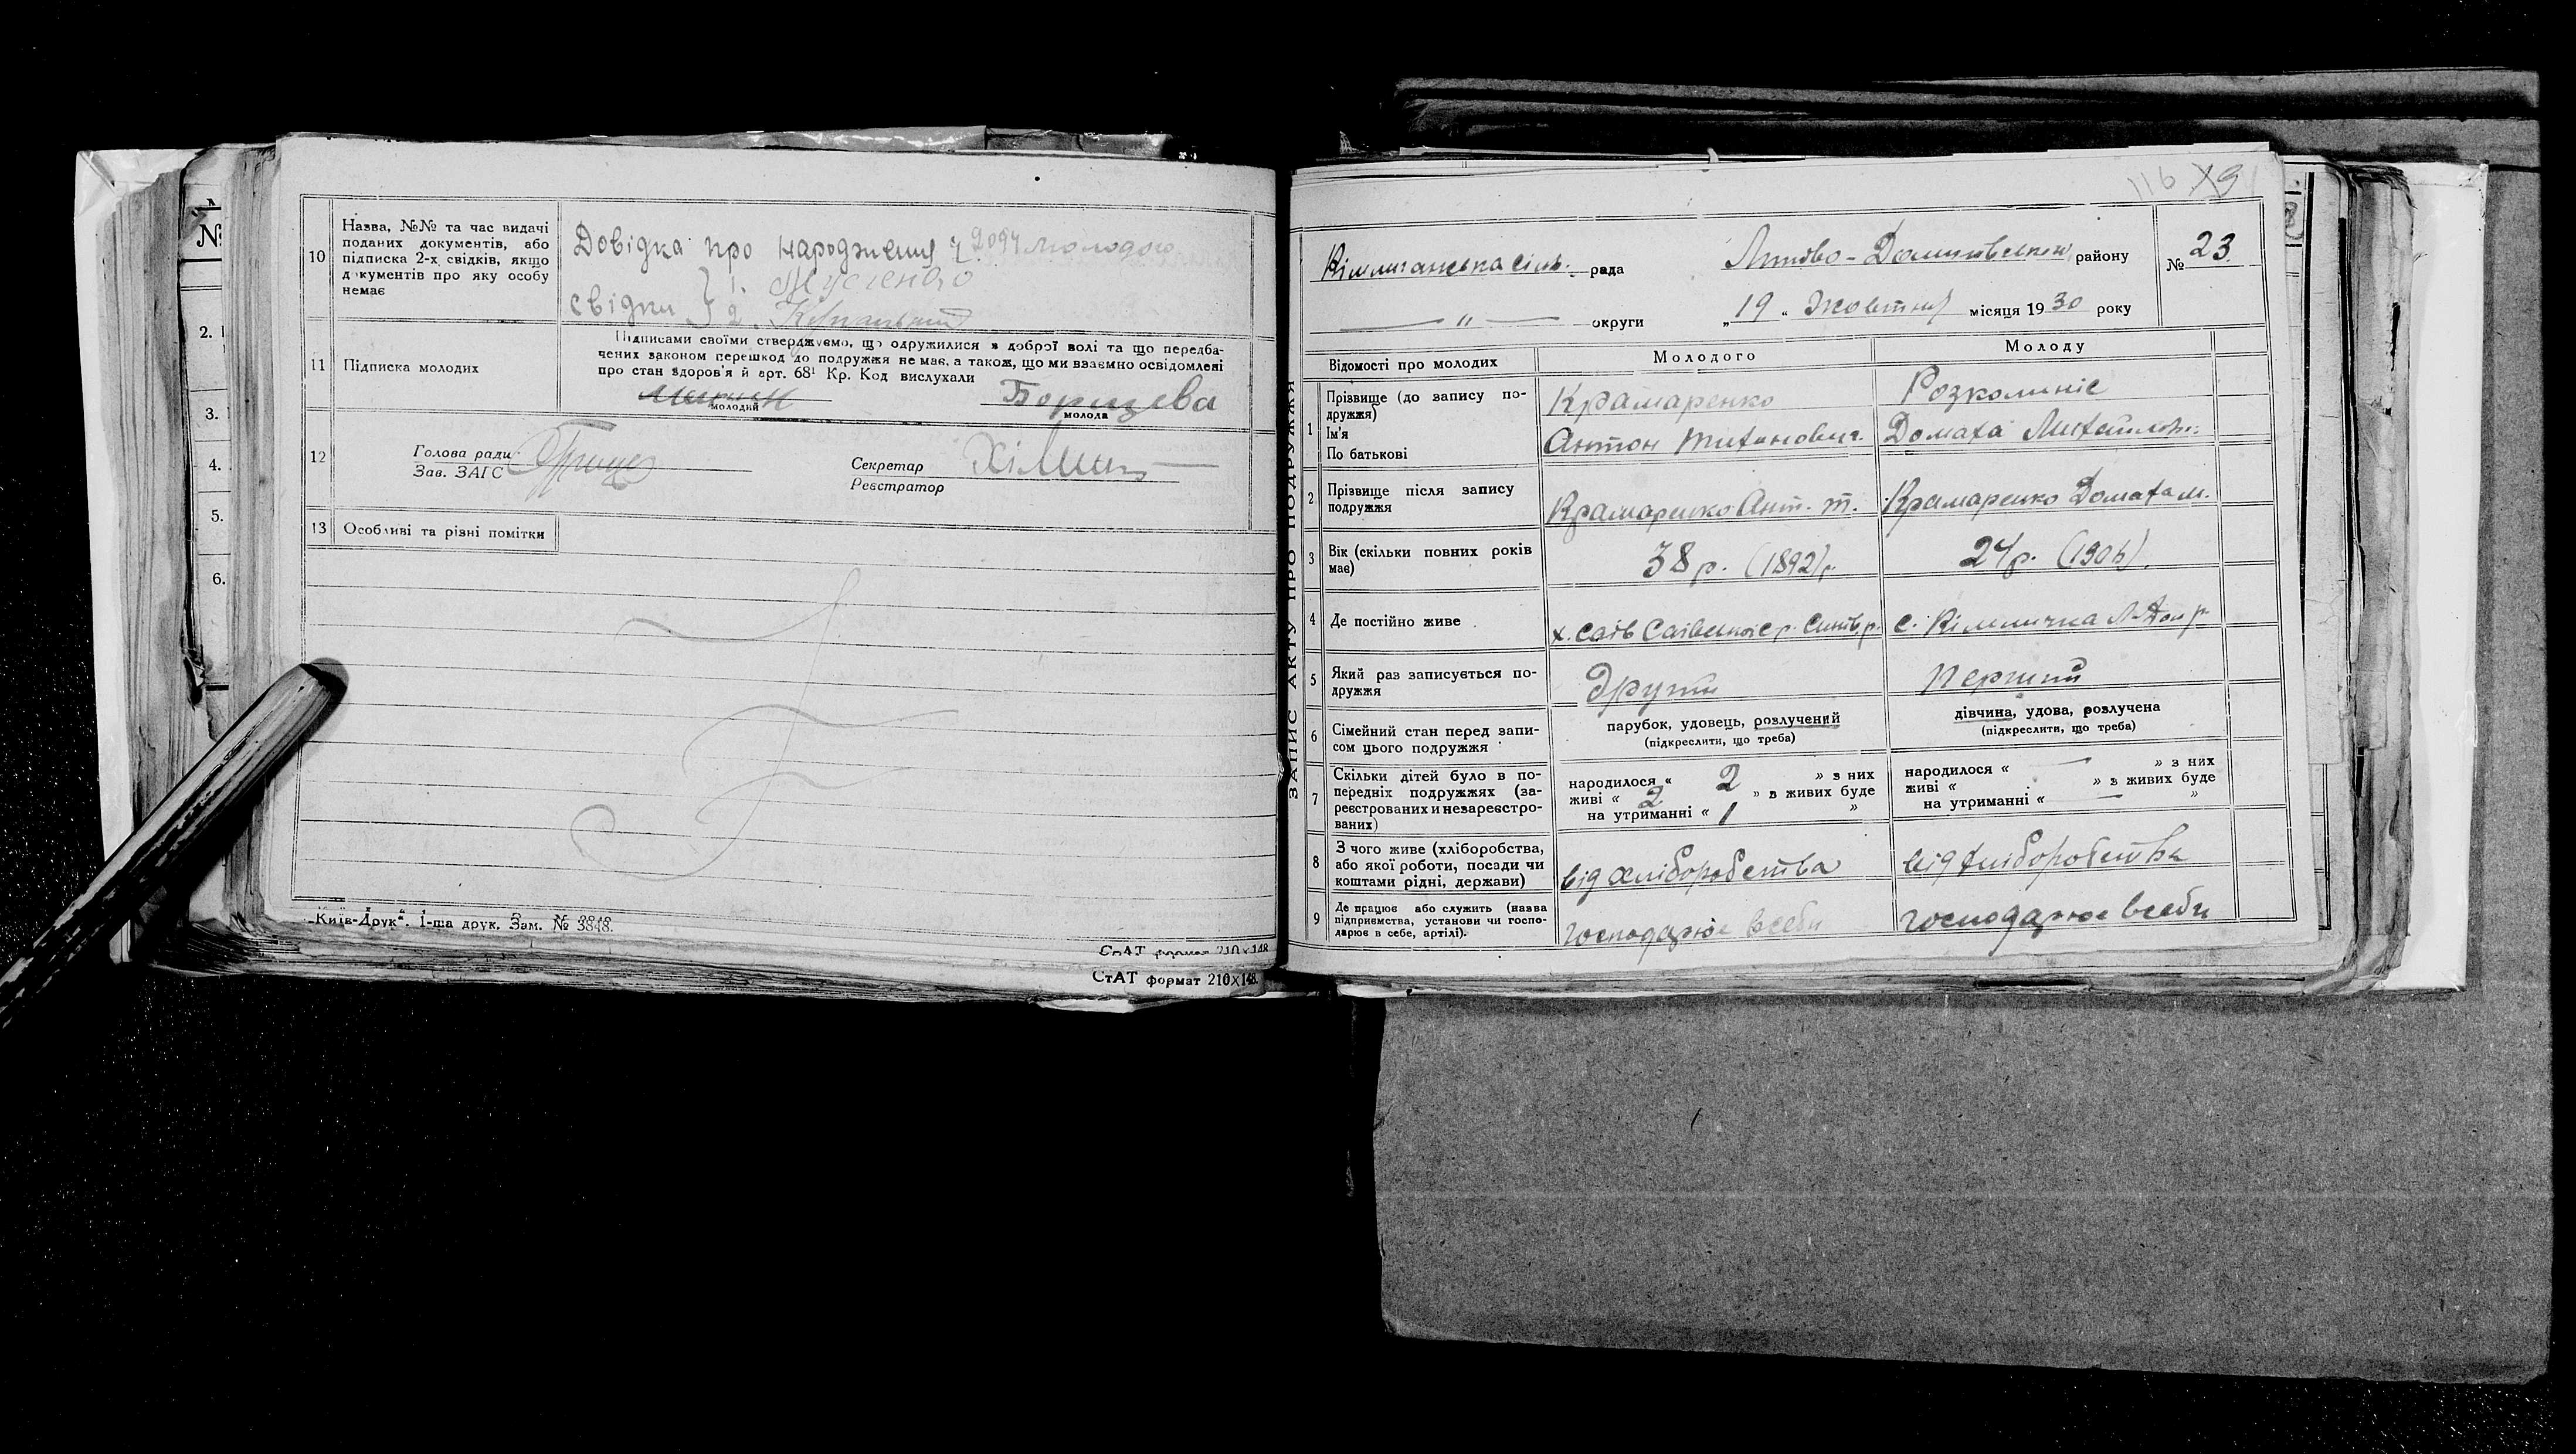 10
Назва, №№ та час видачі
поданих документів, або
підписка 2-х свідків, якщо
документів про яку особу
немає
Довідка про народження ч. 2094 молодою
свідки } 1. Мусієнко
2.
11
Підписка молодих
Підписами своїми стверджуємо, що одружилися з доброї волі та що передба-
чених законом перешкод до подружжя не має, а також, що ми взаємно освідомлені
про стан здоров'я й арт. 68¹ Кр. Код вислухали
Борщева
молодий
молода
12
Голова ради
Зав. ЗАГС
Секретар
Реєстратор
13
Особливі та різні помітки
„Київ-Друк“. 1-ша друк. Зам. № 3848.
СтАТ формат 210×148
СтАТ формат 210×148.
№
2.
3.
4.
5.
6.
116
ЗАПИС АКТУ ПРО ПОДРУЖЖЯ
сіль. рада
району
№ 23
— " — округи
„19“ Жовтня місяця 1930 року
Відомості про молодих
Молодого
Молоду
1
Прізвище (до запису по-
дружжя)
Ім'я
По батькові
Крамаренко
Антон Тиханович.
Домаха Михайлов.
2
Прізвище після запису
подружжя
Крамаренко Ант. Т.
Крамаренко Домаха М.
3
Вік (скільки повних років
має)
38 р. (1892) р.
24 р. (1906).
4
Де постійно живе
5
Який раз записується по-
дружжя
Другий
Перший
6
Сімейний стан перед запи-
сом цього подружжя
парубок, удовець, розлучений
(підкреслити, що треба)
дівчина, удова, розлучена
(підкреслити, що треба)
7
Скільки дітей було в по-
передніх подружжях (за-
реєстрованих и незареєстро-
ваних)
народилося « 2 » з них
живі « 2 » з живих буде
на утриманні « 1 »
народилося « — » з них
живі « » з живих буде
на утриманні « — »
8
З чого живе (хліборобства,
або якої роботи, посади чи
коштами рідні, держави)
від хліборобства
від хліборобства
9
Де працює або служить (назва
підприємства, установи чи госпо-
дарює в себе, артілі).
господарює в себи
господарює в себи